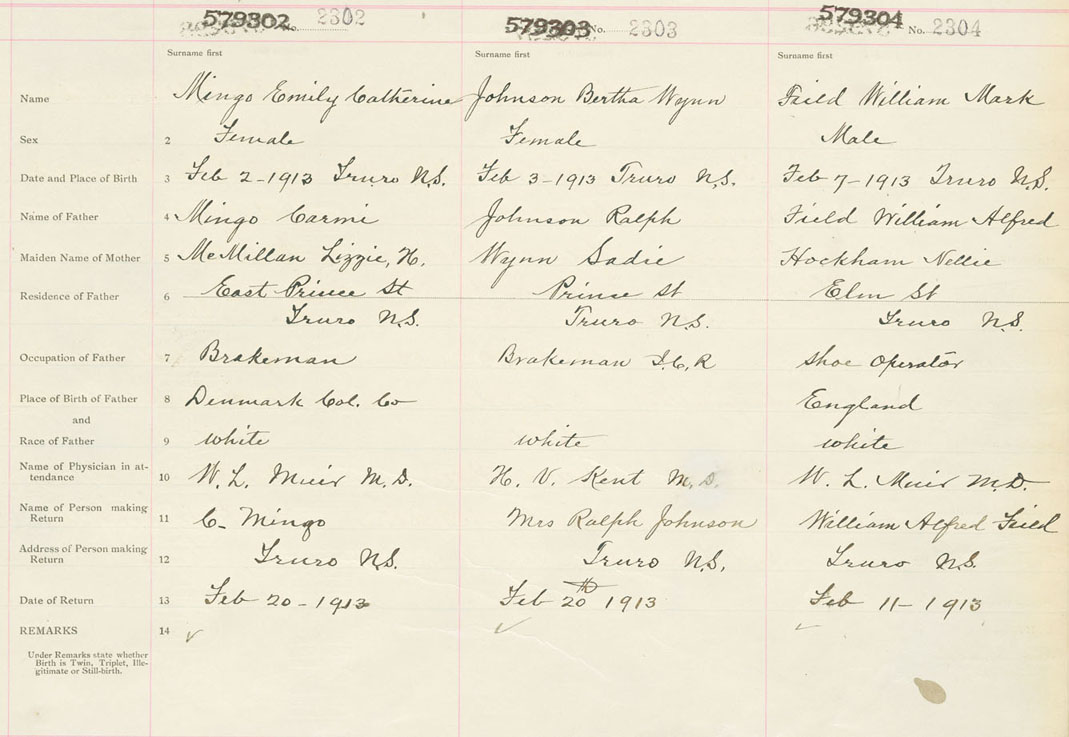 579302 No. 2302 579303 No. 2303 579304 No. 2304
Surname first Surname first Surname first
Name Mingo Emily Catherine Johnson Bertha Wynn Faild William Mark
Sex 2 Female Female Male
Date and Place of Birth 3 Feb 2-1913 Truro N.S. Feb 3-1913 Truro N.S. Feb 7-1913 Truro N.S.
Name of Father 4 Mingo Carmi Johnson Ralph Field William Alfred
Maiden Name of Mother 5 McMillan Lizzie, H. Wynn Sadie Hockham Nellie
Residence of Father 6 East Prince St Prince St Elm St
Truro N.S. Truro N.S. Truro N.S.
Occupation of Father 7 Brakeman Brakeman I.C.R Shoe Operator
Place of Birth of Father 8 Denmark Col. Co England
and
Race of Father 9 white white white
Name of Physician in at-
tendance 10 W. L. Muir M.D. H. V. Kent M.D. W. L. Muir M.D.
Name of Person making
Return 11 C- Mingo Mrs Ralph Johnson William Alfred Faild
Address of Person making
Return 12 Truro N.S. Truro N.S. Truro N.S.
Date of Return 13 Feb 20-1913 Feb 20th 1913 Feb 11-1913
REMARKS 14
Under Remarks state whether
Birth is Twin, Triplet, Ille-
gitimate or Still-birth.